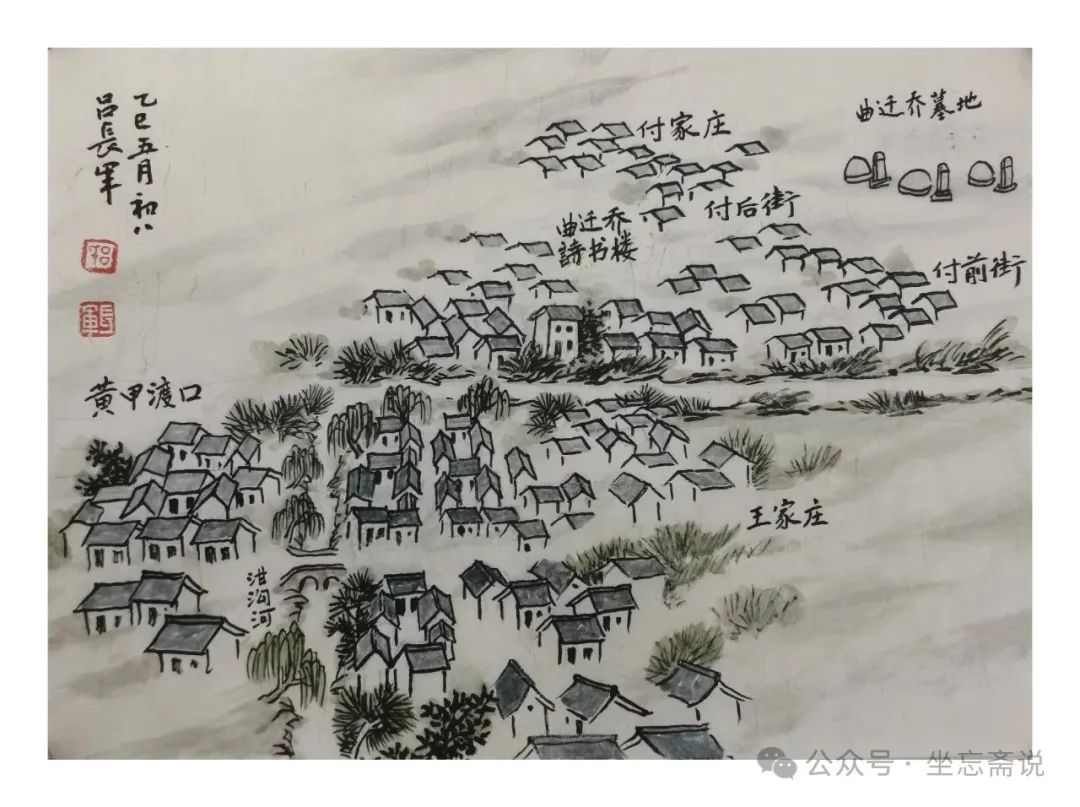 乙巳五月初八
吕長军
吕
長軍
曲迁乔墓地
付家庄
付后街
曲迁乔
詩书楼
付前街
黄甲渡口
王家庄
泔沟河
公众号 · 坐忘斋说